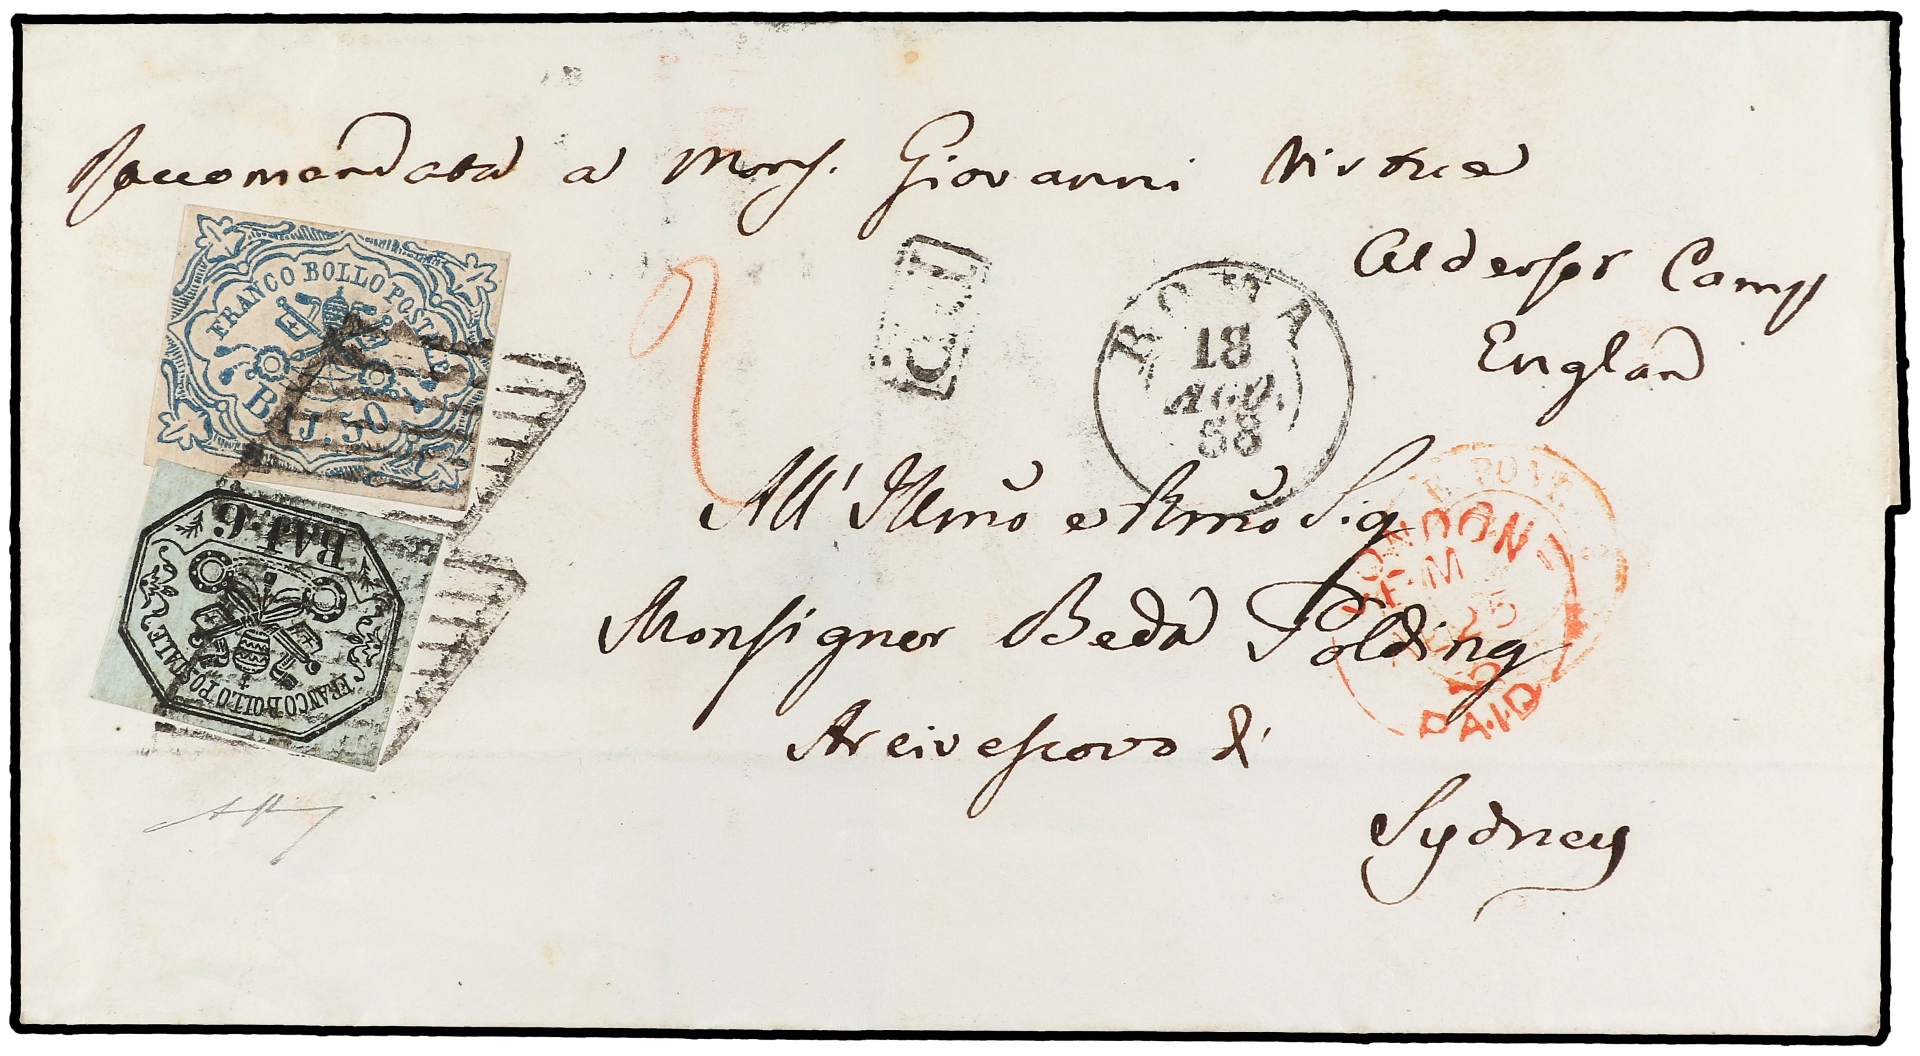 Raccomandata a Mons. Giovanni Virtue
Aldersot Camp
England
FRANCO BOLLO POSTALE
BAJ. 50
P.D.
ROMA
18
AGO.
58
All' Illmo e Rmo Sig
Monsignor Beda Polding
Arcivescovo di
Sydney
BAJ. 6
FRANCO BOLLO POSTALE
E. PONT.
LONDON
25
PAID